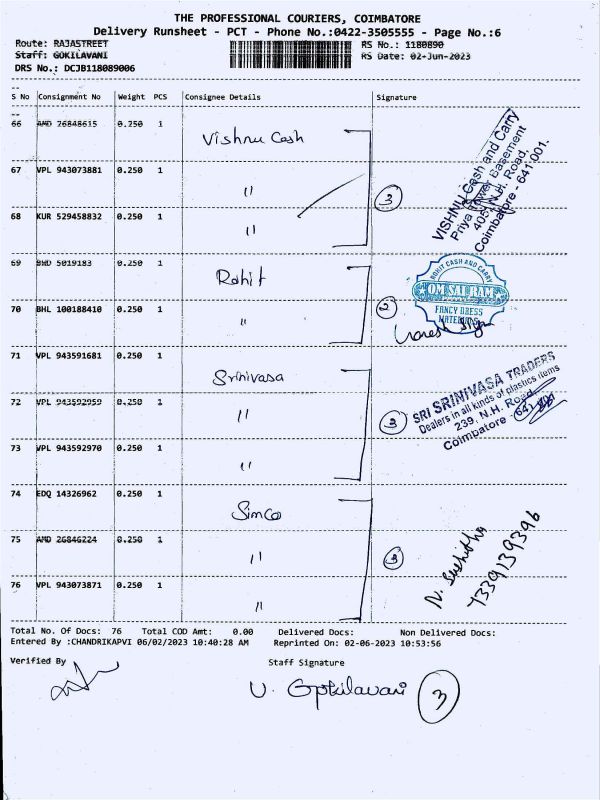 THE PROFESSIONAL COURIERS, COIMBATORE
Delivery Runsheet - PCT - Phone No.:0422-3505555 - Page No.:6
Route: RAJASTREET RS No.: 1180890
Staff: GOKILAVANI RS Date: 02-Jun-2023
DRS No.: DCJB118089006
S No Consignment No Weight PCS Consignee Details Signature
66 AMD 26848615 0.250 1 Vishnu Cash
67 VPL 943073881 0.250 1 "
68 KUR 529458832 0.250 1 "
3
VISHNU Cash and Carry
Priya Tower Basement
405, N.H. Road,
Coimbatore - 641 001.
69 BHD 5019183 0.250 1 Rohit
70 BHL 100188410 0.250 1 "
2
ROHIT CASH AND CARRY
OM SAI RAM
FANCY DRESS
MATERIALS
71 VPL 943591681 0.250 1 Srinivasa
72 VPL 943592959 0.250 1 "
73 VPL 943592970 0.250 1 "
3
SRI SRINIVASA TRADERS
Dealers in all kinds of plastics items
239, N.H. Road,
Coimbatore - 641 001
74 EDQ 14326962 0.250 1 Simco
75 AMD 26846224 0.250 1 "
76 VPL 943073871 0.250 1 "
3
N. Sushitha
7339139396
Total No. Of Docs: 76 Total COD Amt: 0.00 Delivered Docs: Non Delivered Docs:
Entered By :CHANDRIKAPVI 06/02/2023 10:40:28 AM Reprinted On: 02-06-2023 10:53:56
Verified By Staff Signature
V. Gokilavani 3